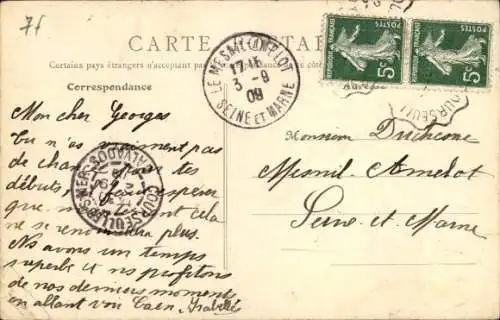 77
CARTE POSTALE
Certains pays étrangers n'acceptent pas
Correspondance
Adresse
LE MESNIL-AMELOT
17 15
3 - 9
09
SEINE ET MARNE
REPUBLIQUE FRANÇAISE
5c
REPUBLIQUE FRANÇAISE
5c
COURSEULLES-S-MER
CALVADOS
Mon cher Georges
Tu n'as vraiment pas
de chance pour tes
débuts, il faut espérer
que maintenant cela
ne se renouvellera plus.
Ns avons un temps
superbe et ns profitons
de nos derniers moments
en allant voir Caen, Isabelle
Monsieur Duchesne
Mesnil-Amelot
Seine et Marne